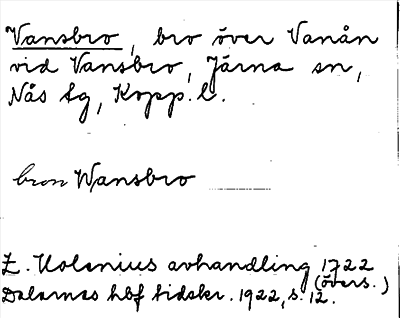 Vansbro, bro över Vanån
vid Vansbro, Järna sn,
Nås tg, Kopp. l.
bron Wansbro
E. Uolenius avhandling 1722
(övers.)
Dalarnas hbf tidskr. 1922, s. 12.